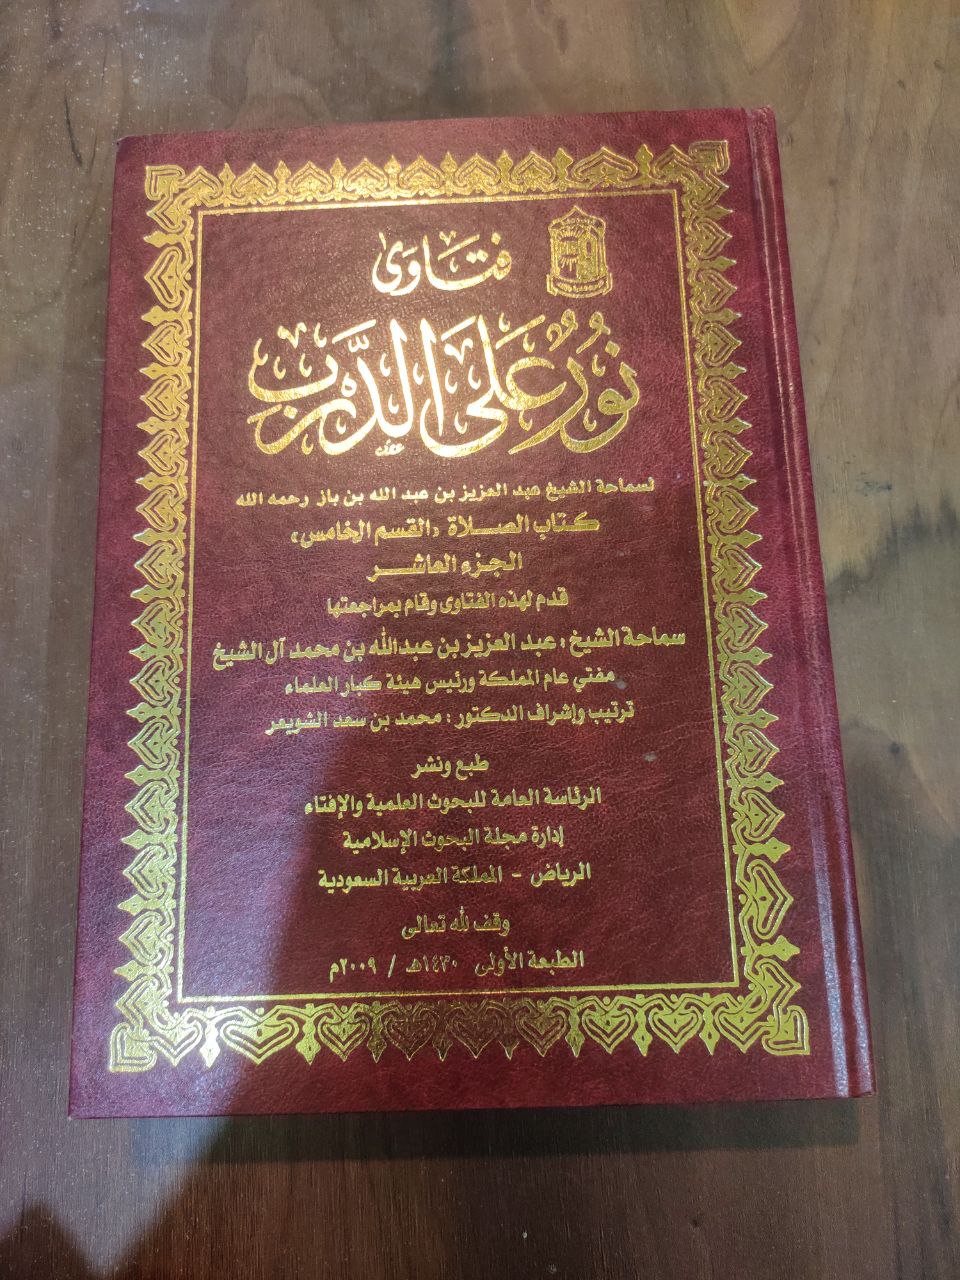 فتاوى
نُورٌ عَلَى الدَّرْبِ
لسماحة الشيخ عبد العزيز بن عبد الله بن باز رحمه الله
كتاب الصلاة «القسم الخامس»
الجزء العاشر
قدم لهذه الفتاوى وقام بمراجعتها
سماحة الشيخ : عبد العزيز بن عبدالله بن محمد آل الشيخ
مفتي عام المملكة ورئيس هيئة كبار العلماء
ترتيب وإشراف الدكتور : محمد بن سعد الشويعر
طبع ونشر
الرئاسة العامة للبحوث العلمية والإفتاء
إدارة مجلة البحوث الإسلامية
الرياض - المملكة العربية السعودية
وقف لله تعالى
الطبعة الأولى ١٤٣٠هـ / ٢٠٠٩م